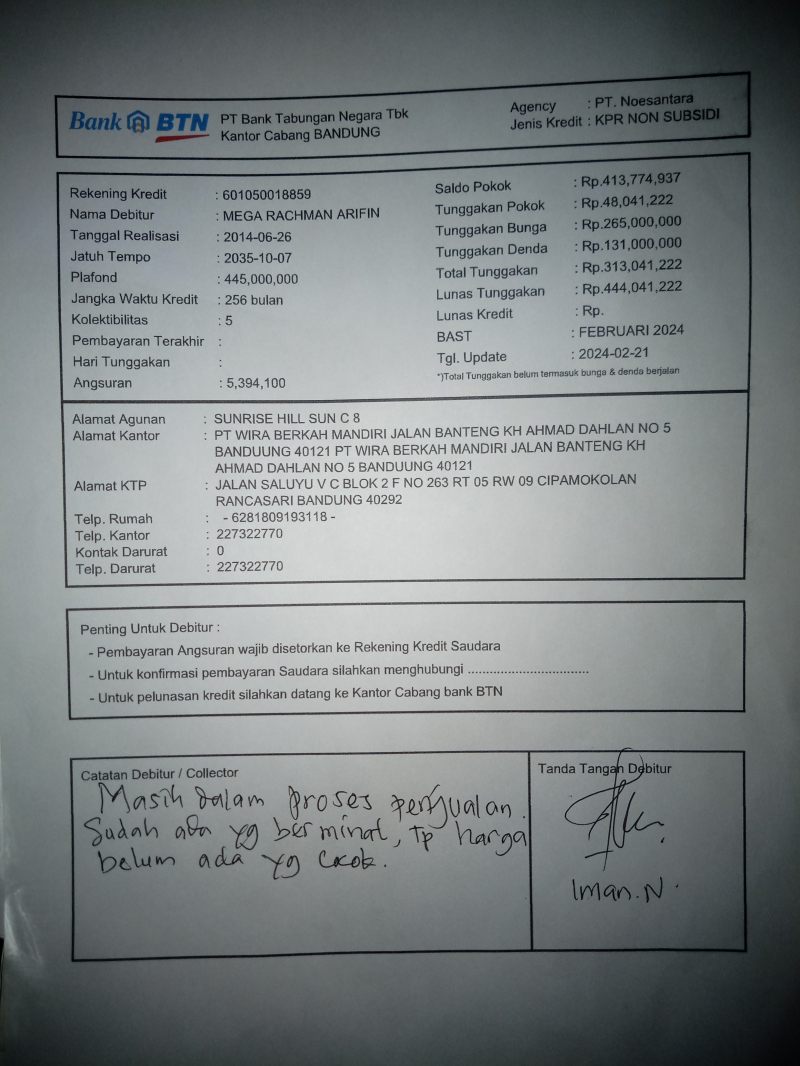 Bank BTN
PT Bank Tabungan Negara Tbk
Kantor Cabang BANDUNG
Agency : PT. Noesantara
Jenis Kredit : KPR NON SUBSIDI
Rekening Kredit : 601050018859
Nama Debitur : MEGA RACHMAN ARIFIN
Tanggal Realisasi : 2014-06-26
Jatuh Tempo : 2035-10-07
Plafond : 445,000,000
Jangka Waktu Kredit : 256 bulan
Kolektibilitas : 5
Pembayaran Terakhir :
Hari Tunggakan :
Angsuran : 5,394,100
Saldo Pokok : Rp.413,774,937
Tunggakan Pokok : Rp.48,041,222
Tunggakan Bunga : Rp.265,000,000
Tunggakan Denda : Rp.131,000,000
Total Tunggakan : Rp.313,041,222
Lunas Tunggakan : Rp.444,041,222
Lunas Kredit : Rp.
BAST : FEBRUARI 2024
Tgl. Update : 2024-02-21
*)Total Tunggakan belum termasuk bunga & denda berjalan
Alamat Agunan : SUNRISE HILL SUN C 8
Alamat Kantor : PT WIRA BERKAH MANDIRI JALAN BANTENG KH AHMAD DAHLAN NO 5
BANDUUNG 40121 PT WIRA BERKAH MANDIRI JALAN BANTENG KH
AHMAD DAHLAN NO 5 BANDUUNG 40121
Alamat KTP : JALAN SALUYU V C BLOK 2 F NO 263 RT 05 RW 09 CIPAMOKOLAN
RANCASARI BANDUNG 40292
Telp. Rumah : - 6281809193118 -
Telp. Kantor : 227322770
Kontak Darurat : 0
Telp. Darurat : 227322770
Penting Untuk Debitur :
- Pembayaran Angsuran wajib disetorkan ke Rekening Kredit Saudara
- Untuk konfirmasi pembayaran Saudara silahkan menghubungi ................................
- Untuk pelunasan kredit silahkan datang ke Kantor Cabang bank BTN
Catatan Debitur / Collector
Masih dalam proses penjualan.
Sudah ada yg berminat, tp harga
belum ada yg cocok.
Tanda Tangan Debitur
Iman.N.